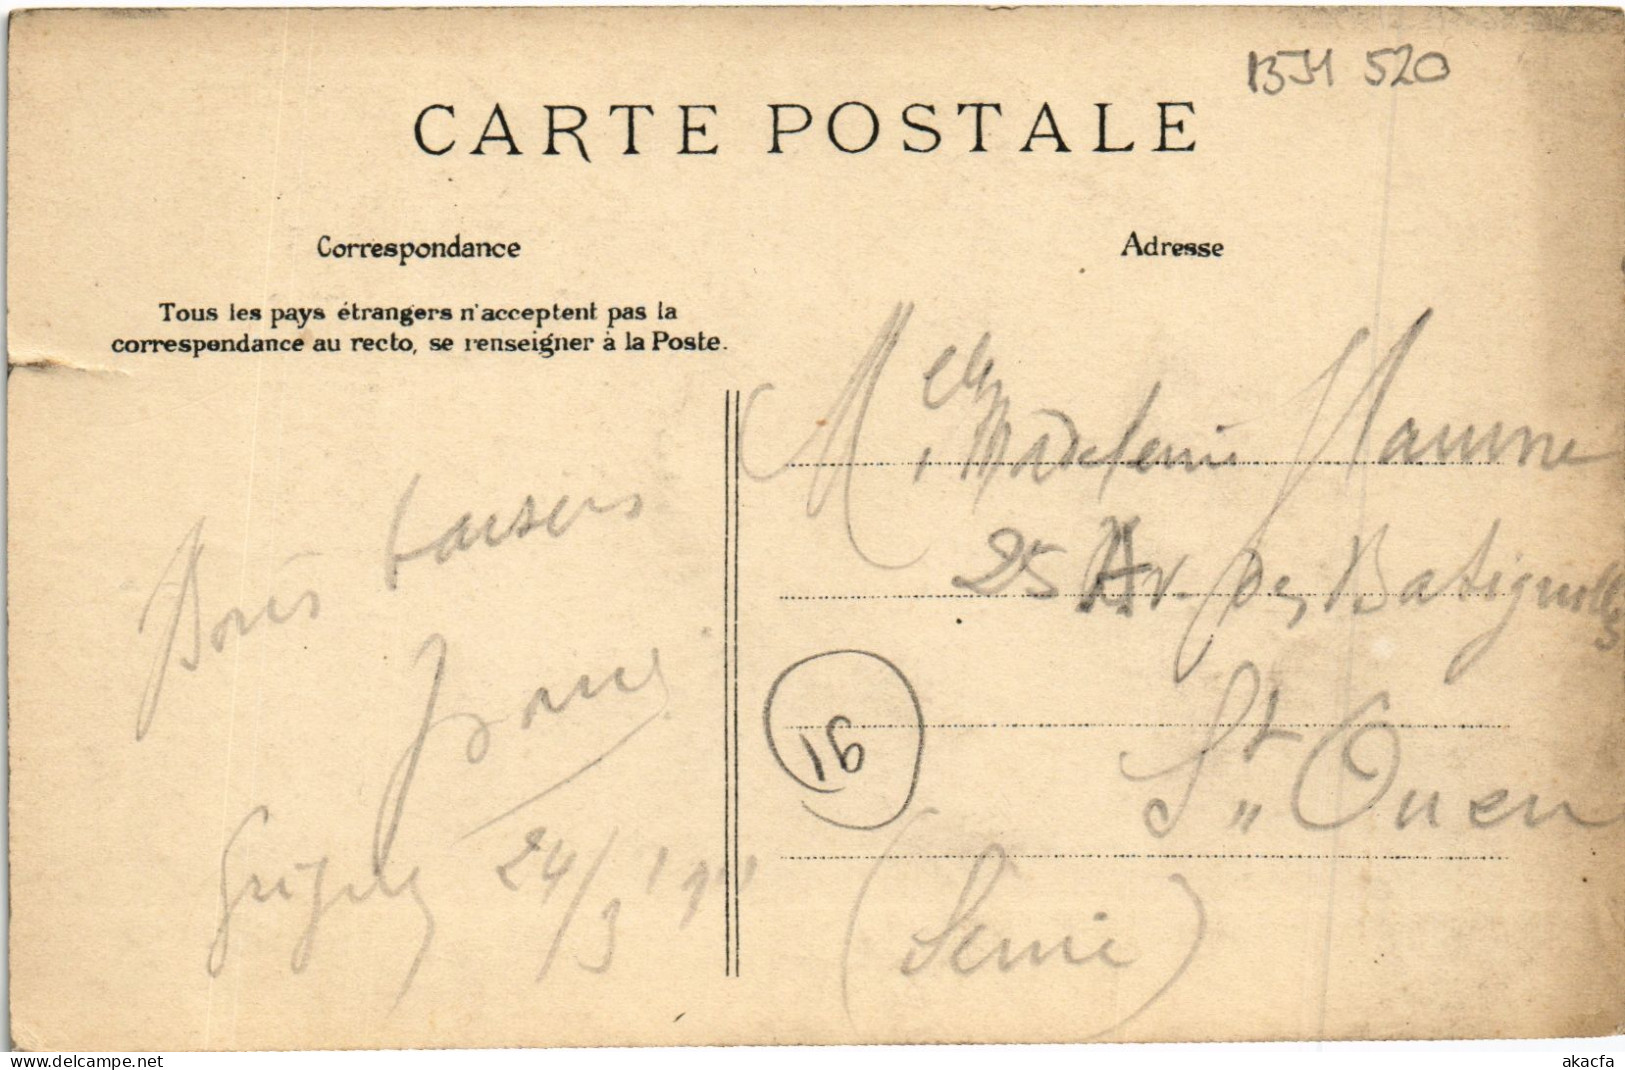 BJ1 520
CARTE POSTALE
Correspondance
Adresse
Tous les pays étrangers n'acceptent pas la
correspondance au recto, se renseigner à la Poste.
Melle Madeleine
25 Av. des Batignolles
St Ouen
(Seine)
16
baisers
Grigny 24/3
www.delcampe.net
akacfa